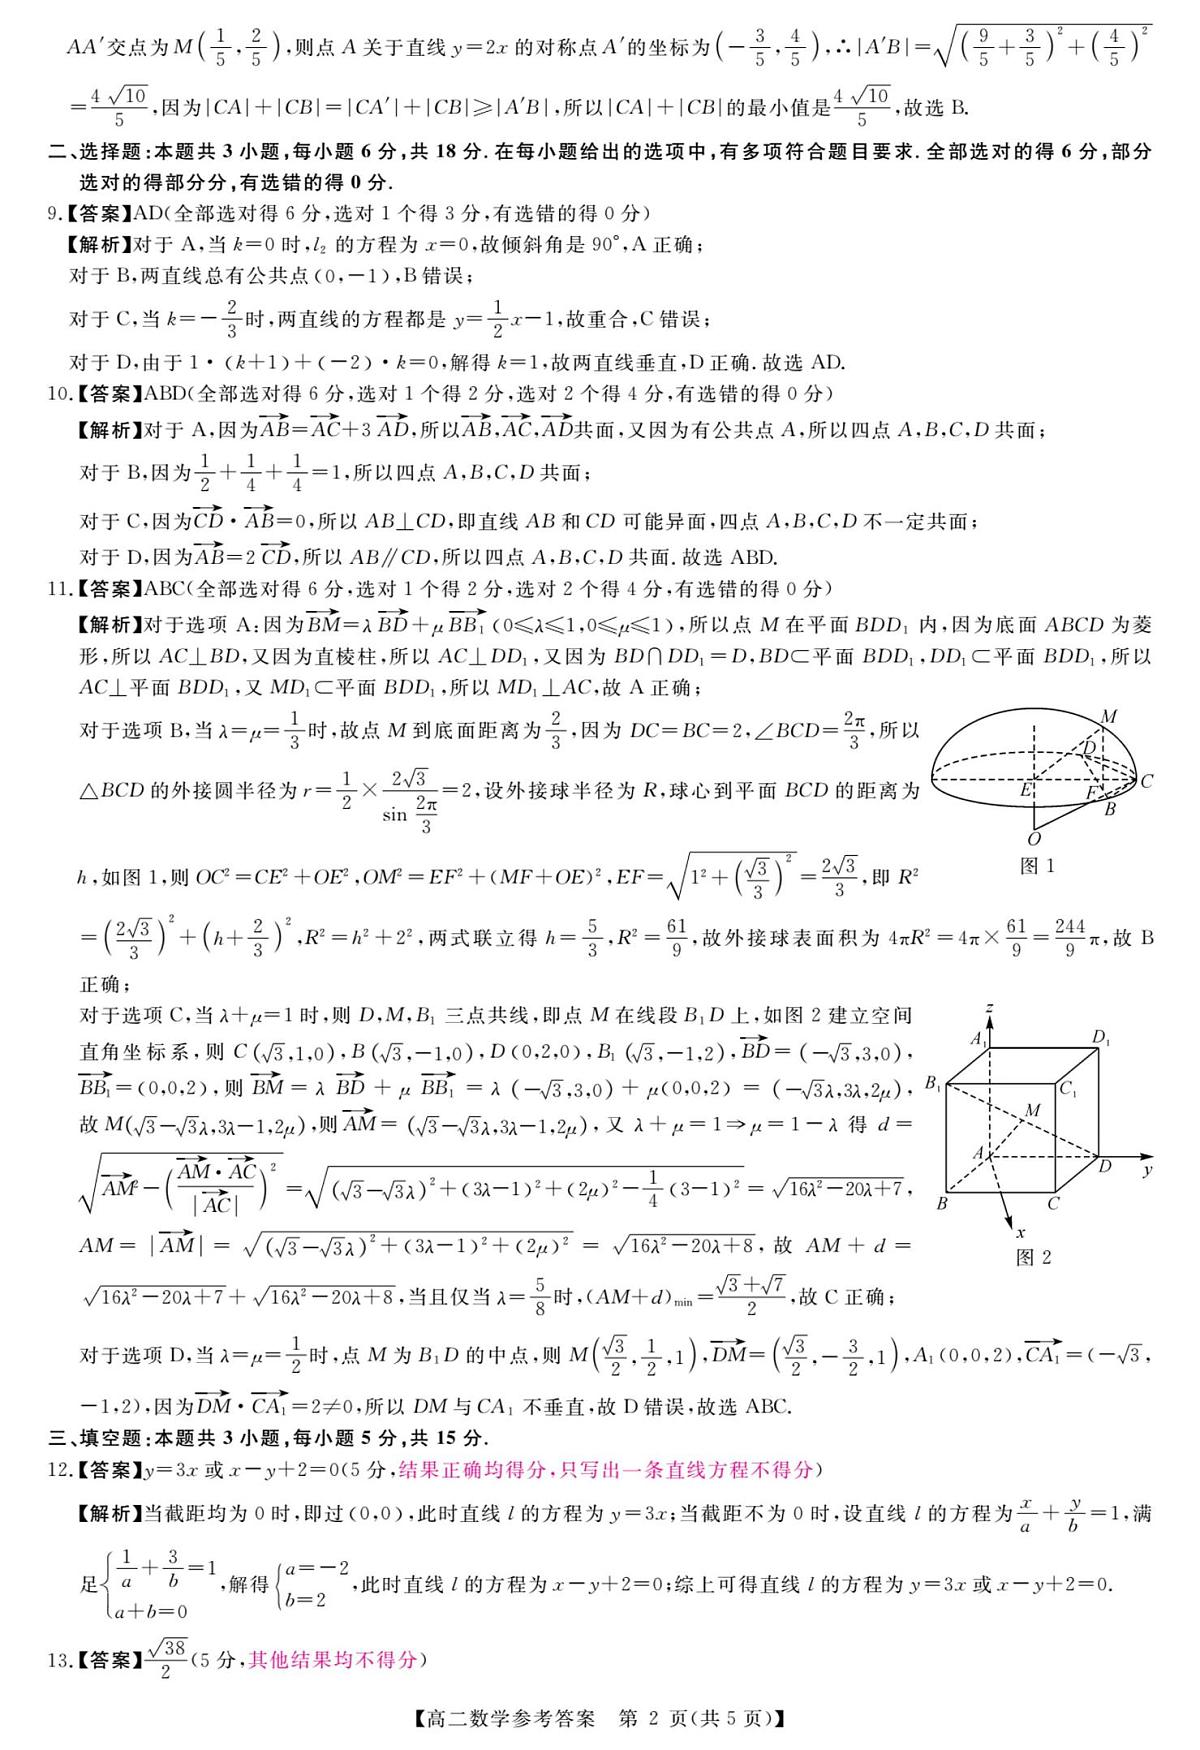 AA′交点为M(1/5,2/5),则点A关于直线y=2x的对称点A′的坐标为(-3/5,4/5),∴|A′B|=√((9/5+3/5)²+(4/5)²)
=4√10/5,因为|CA|+|CB|=|CA′|+|CB|≥|A′B|,所以|CA|+|CB|的最小值是4√10/5,故选B.
二、选择题:本题共3小题,每小题6分,共18分.在每小题给出的选项中,有多项符合题目要求.全部选对的得6分,部分
选对的得部分分,有选错的得0分.
9.【答案】AD(全部选对得6分,选对1个得3分,有选错的得0分)
【解析】对于A,当k=0时,l₂的方程为x=0,故倾斜角是90°,A正确;
对于B,两直线总有公共点(0,-1),B错误;
对于C,当k=-2/3时,两直线的方程都是y=1/2x-1,故重合,C错误;
对于D,由于1·(k+1)+(-2)·k=0,解得k=1,故两直线垂直,D正确.故选AD.
10.【答案】ABD(全部选对得6分,选对1个得2分,选对2个得4分,有选错的得0分)
【解析】对于A,因为AB→=AC→+3AD→,所以AB→,AC→,AD→共面,又因为有公共点A,所以四点A,B,C,D共面;
对于B,因为1/2+1/4+1/4=1,所以四点A,B,C,D共面;
对于C,因为CD→·AB→=0,所以AB⊥CD,即直线AB和CD可能异面,四点A,B,C,D不一定共面;
对于D,因为AB→=2CD→,所以AB∥CD,所以四点A,B,C,D共面.故选ABD.
11.【答案】ABC(全部选对得6分,选对1个得2分,选对2个得4分,有选错的得0分)
【解析】对于选项A:因为BM→=λBD→+μBB₁→(0≤λ≤1,0≤μ≤1),所以点M在平面BDD₁内,因为底面ABCD为菱
形,所以AC⊥BD,又因为直棱柱,所以AC⊥DD₁,又因为BD∩DD₁=D,BD⊂平面BDD₁,DD₁⊂平面BDD₁,所以
AC⊥平面BDD₁,又MD₁⊂平面BDD₁,所以MD₁⊥AC,故A正确;
对于选项B,当λ=μ=1/3时,故点M到底面距离为2/3,因为DC=BC=2,∠BCD=2π/3,所以
△BCD的外接圆半径为r=1/2×2√3/sin(2π/3)=2,设外接球半径为R,球心到平面BCD的距离为
M
D
E
F
B
C
O
图1
h,如图1,则OC²=CE²+OE²,OM²=EF²+(MF+OE)²,EF=√(1²+(√3/3)²)=2√3/3,即R²
=(2√3/3)²+(h+2/3)²,R²=h²+2²,两式联立得h=5/3,R²=61/9,故外接球表面积为4πR²=4π×61/9=244/9π,故B
正确;
对于选项C,当λ+μ=1时,则D,M,B₁三点共线,即点M在线段B₁D上,如图2建立空间
直角坐标系,则C(√3,1,0),B(√3,-1,0),D(0,2,0),B₁(√3,-1,2),BD→=(-√3,3,0),
BB₁→=(0,0,2),则BM→=λBD→+μBB₁→=λ(-√3,3,0)+μ(0,0,2)=(-√3λ,3λ,2μ),
故M(√3-√3λ,3λ-1,2μ),则AM→=(√3-√3λ,3λ-1,2μ),又λ+μ=1⇒μ=1-λ得d=
√(AM→²-(AM→·AC→/|AC→|)²)=√((√3-√3λ)²+(3λ-1)²+(2μ)²-1/4(3-1)²)=√(16λ²-20λ+7),
AM=|AM→|=√((√3-√3λ)²+(3λ-1)²+(2μ)²)=√(16λ²-20λ+8),故AM+d=
√(16λ²-20λ+7)+√(16λ²-20λ+8),当且仅当λ=5/8时,(AM+d)min=(√3+√7)/2,故C正确;
z
A₁
D₁
B₁
C₁
M
A
D
y
B
C
x
图2
对于选项D,当λ=μ=1/2时,点M为B₁D的中点,则M(√3/2,1/2,1),DM→=(√3/2,-3/2,1),A₁(0,0,2),CA₁→=(-√3,
-1,2),因为DM→·CA₁→=2≠0,所以DM与CA₁不垂直,故D错误,故选ABC.
三、填空题:本题共3小题,每小题5分,共15分.
12.【答案】y=3x或x-y+2=0(5分,结果正确均得分,只写出一条直线方程不得分)
【解析】当截距均为0时,即过(0,0),此时直线l的方程为y=3x;当截距不为0时,设直线l的方程为x/a+y/b=1,满
足{1/a+3/b=1, a+b=0,解得{a=-2, b=2,此时直线l的方程为x-y+2=0;综上可得直线l的方程为y=3x或x-y+2=0.
13.【答案】√38/2(5分,其他结果均不得分)
【高二数学参考答案 第2页(共5页)】